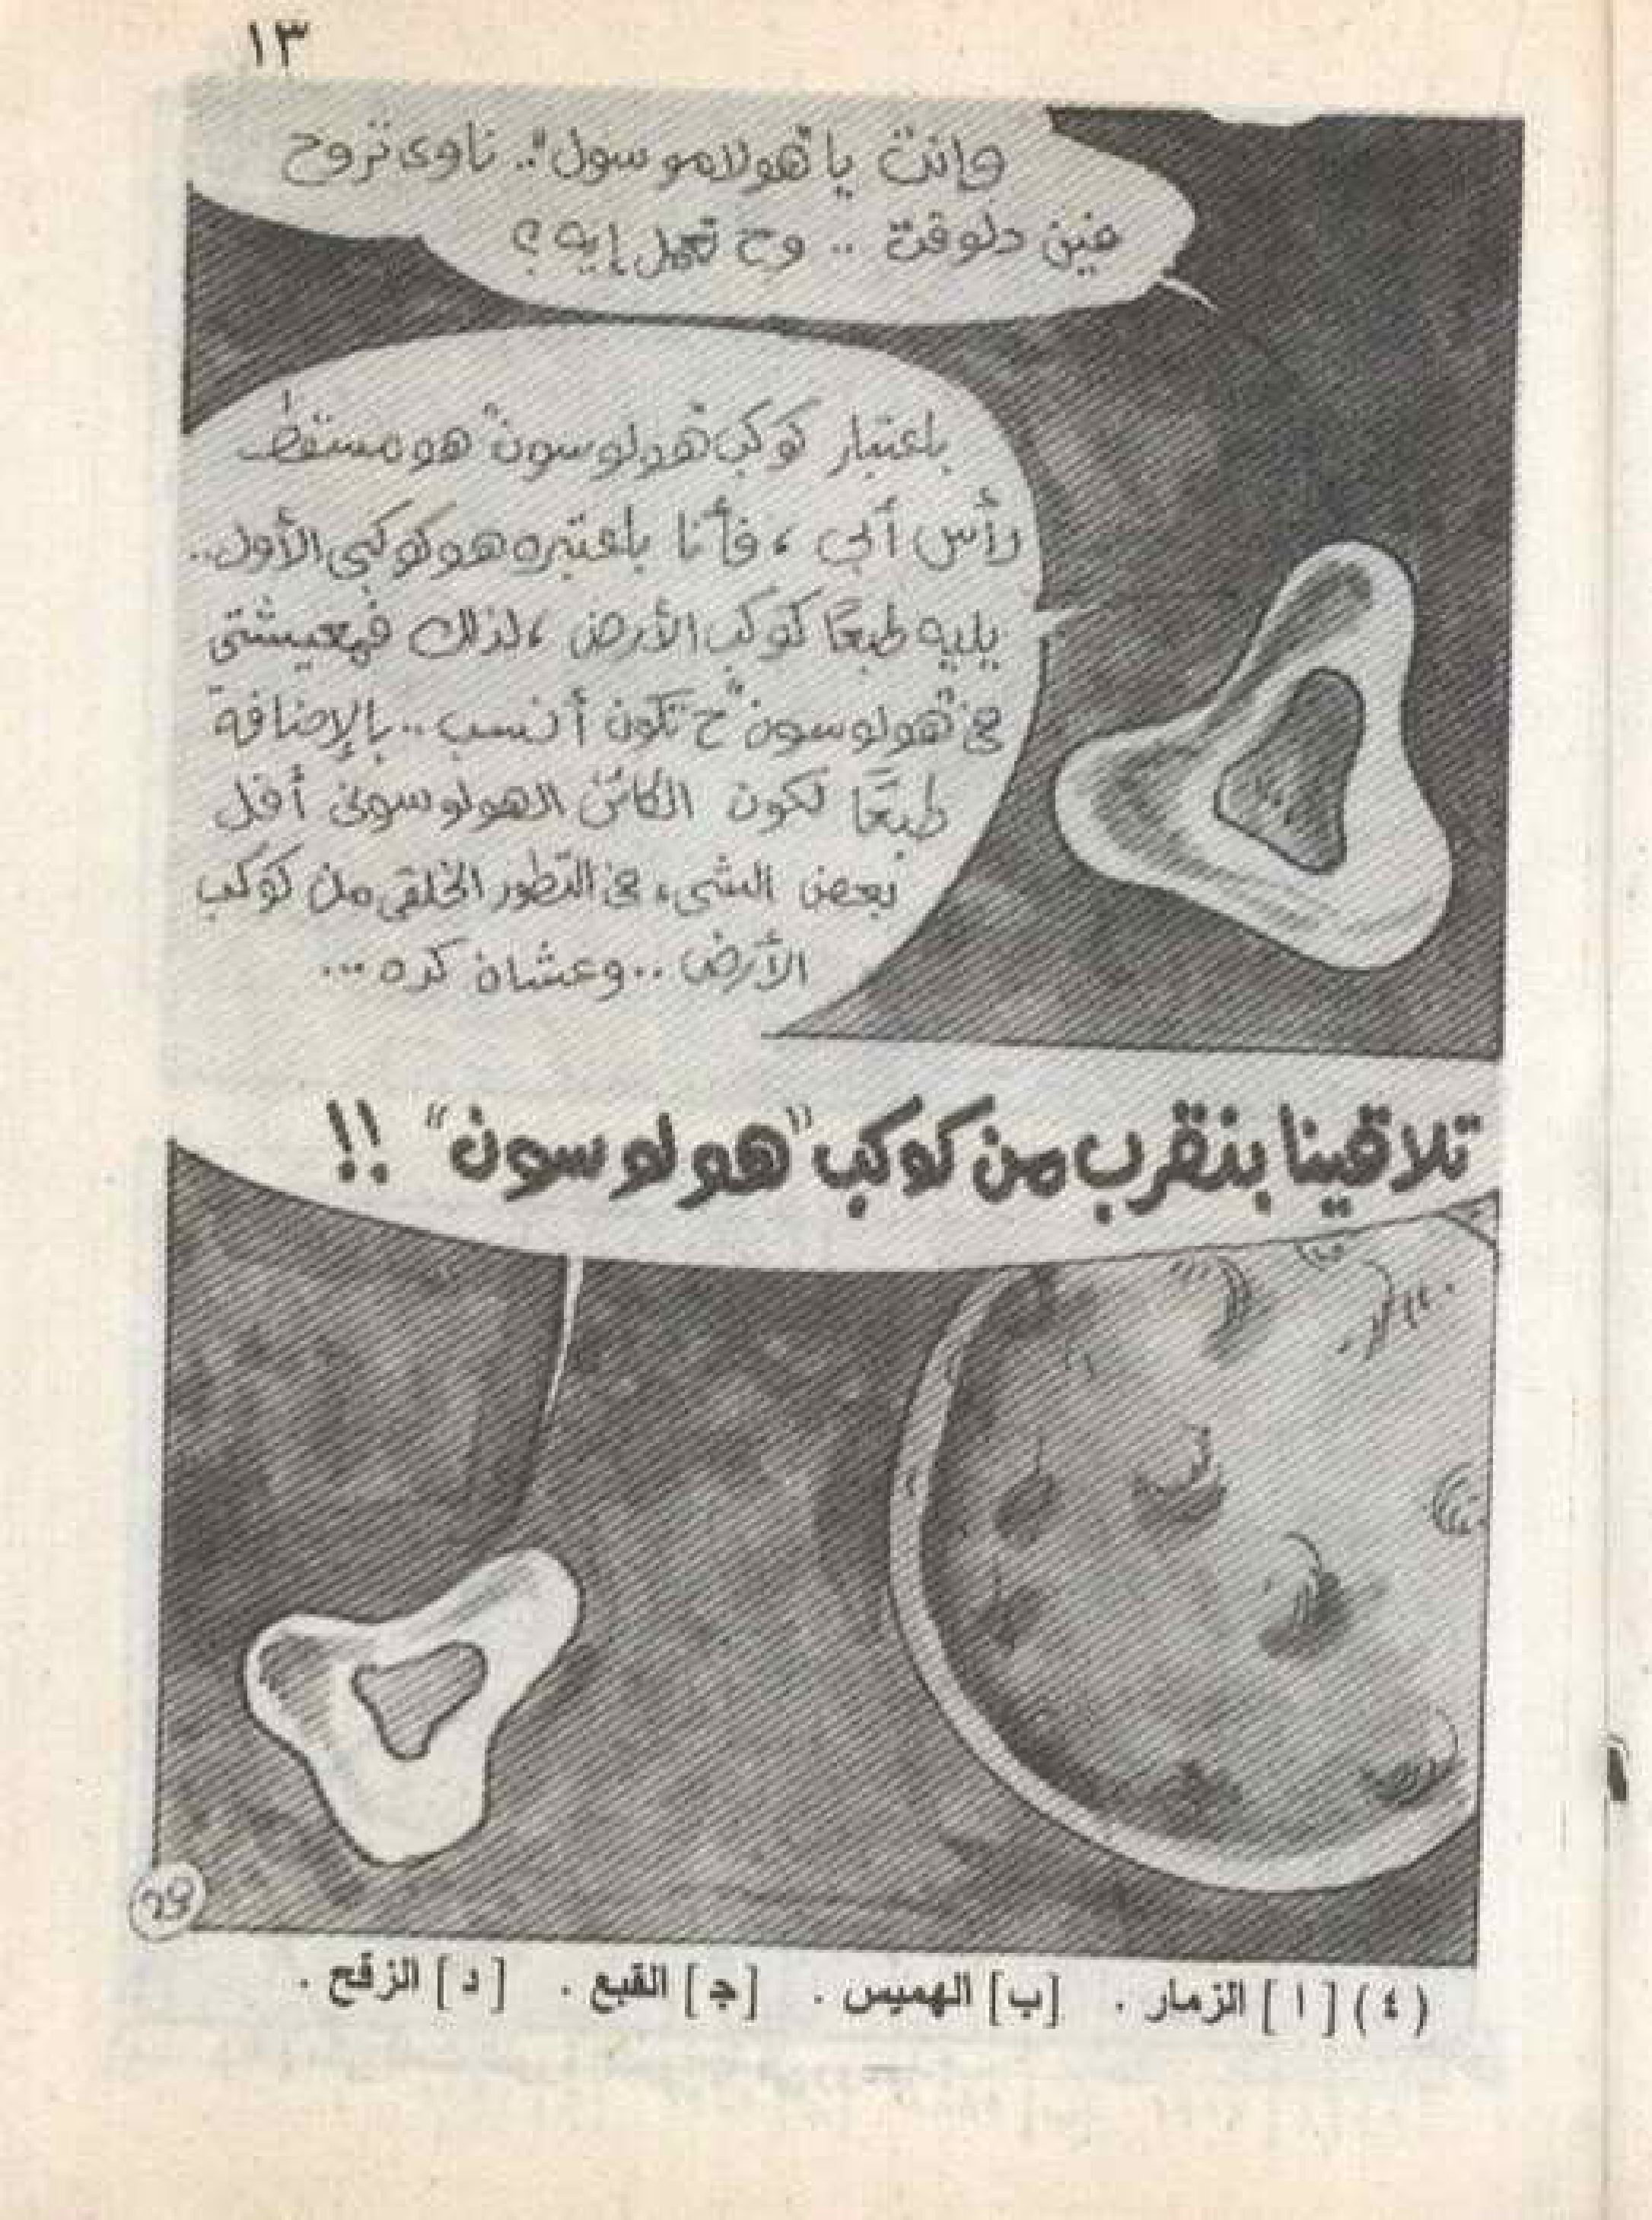 ١٣
وإنت يا "هولاموسول".. ناوى تروح
فين دلوقت .. وح تعمل إيه ؟
باعتبار كوكب "هولوسون" هو مسقط
رأس أبى ، فأنا باعتبره هو كوكبى الأول..
يليه طبعًا كوكب الأرض ، لذلك فمعيشتى
فى "هولوسون" ح تكون أنسب .. بالإضافة
طبعًا لكون الكائن الهولوسونى أقل
بعض الشىء فى التطور الخلقى من كوكب
الأرض .. وعشان كده ...
تلاقينا بنقرب من كوكب "هولوسون" !!
(٤) [ ا ] الزمار . [ب] الهميس . [جـ] القبع . [ د ] الزقح .